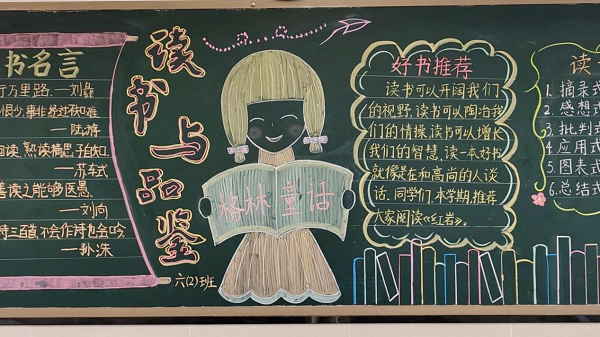 书名言
行万里路.—刘彝
恨少,事非经过不知难
—陆游
回读,熟读精思子自知
—苏轼
善读之能够医愚
—刘向
诗三百首,不会作诗也会吟
—孙洙
读书与品鉴
六(2)班
格林童话
好书推荐
读书可以开阔我们
的视野,读书可以陶冶我
们的情操,读书可以增长
我们的智慧,读一本好书
就像是在和高尚的人谈
话.同学们,本学期,推荐
大家阅读《红岩》.
读
1.摘录式
2.感想式
3.批判式
4.应用式
5.图表式
6.总结式